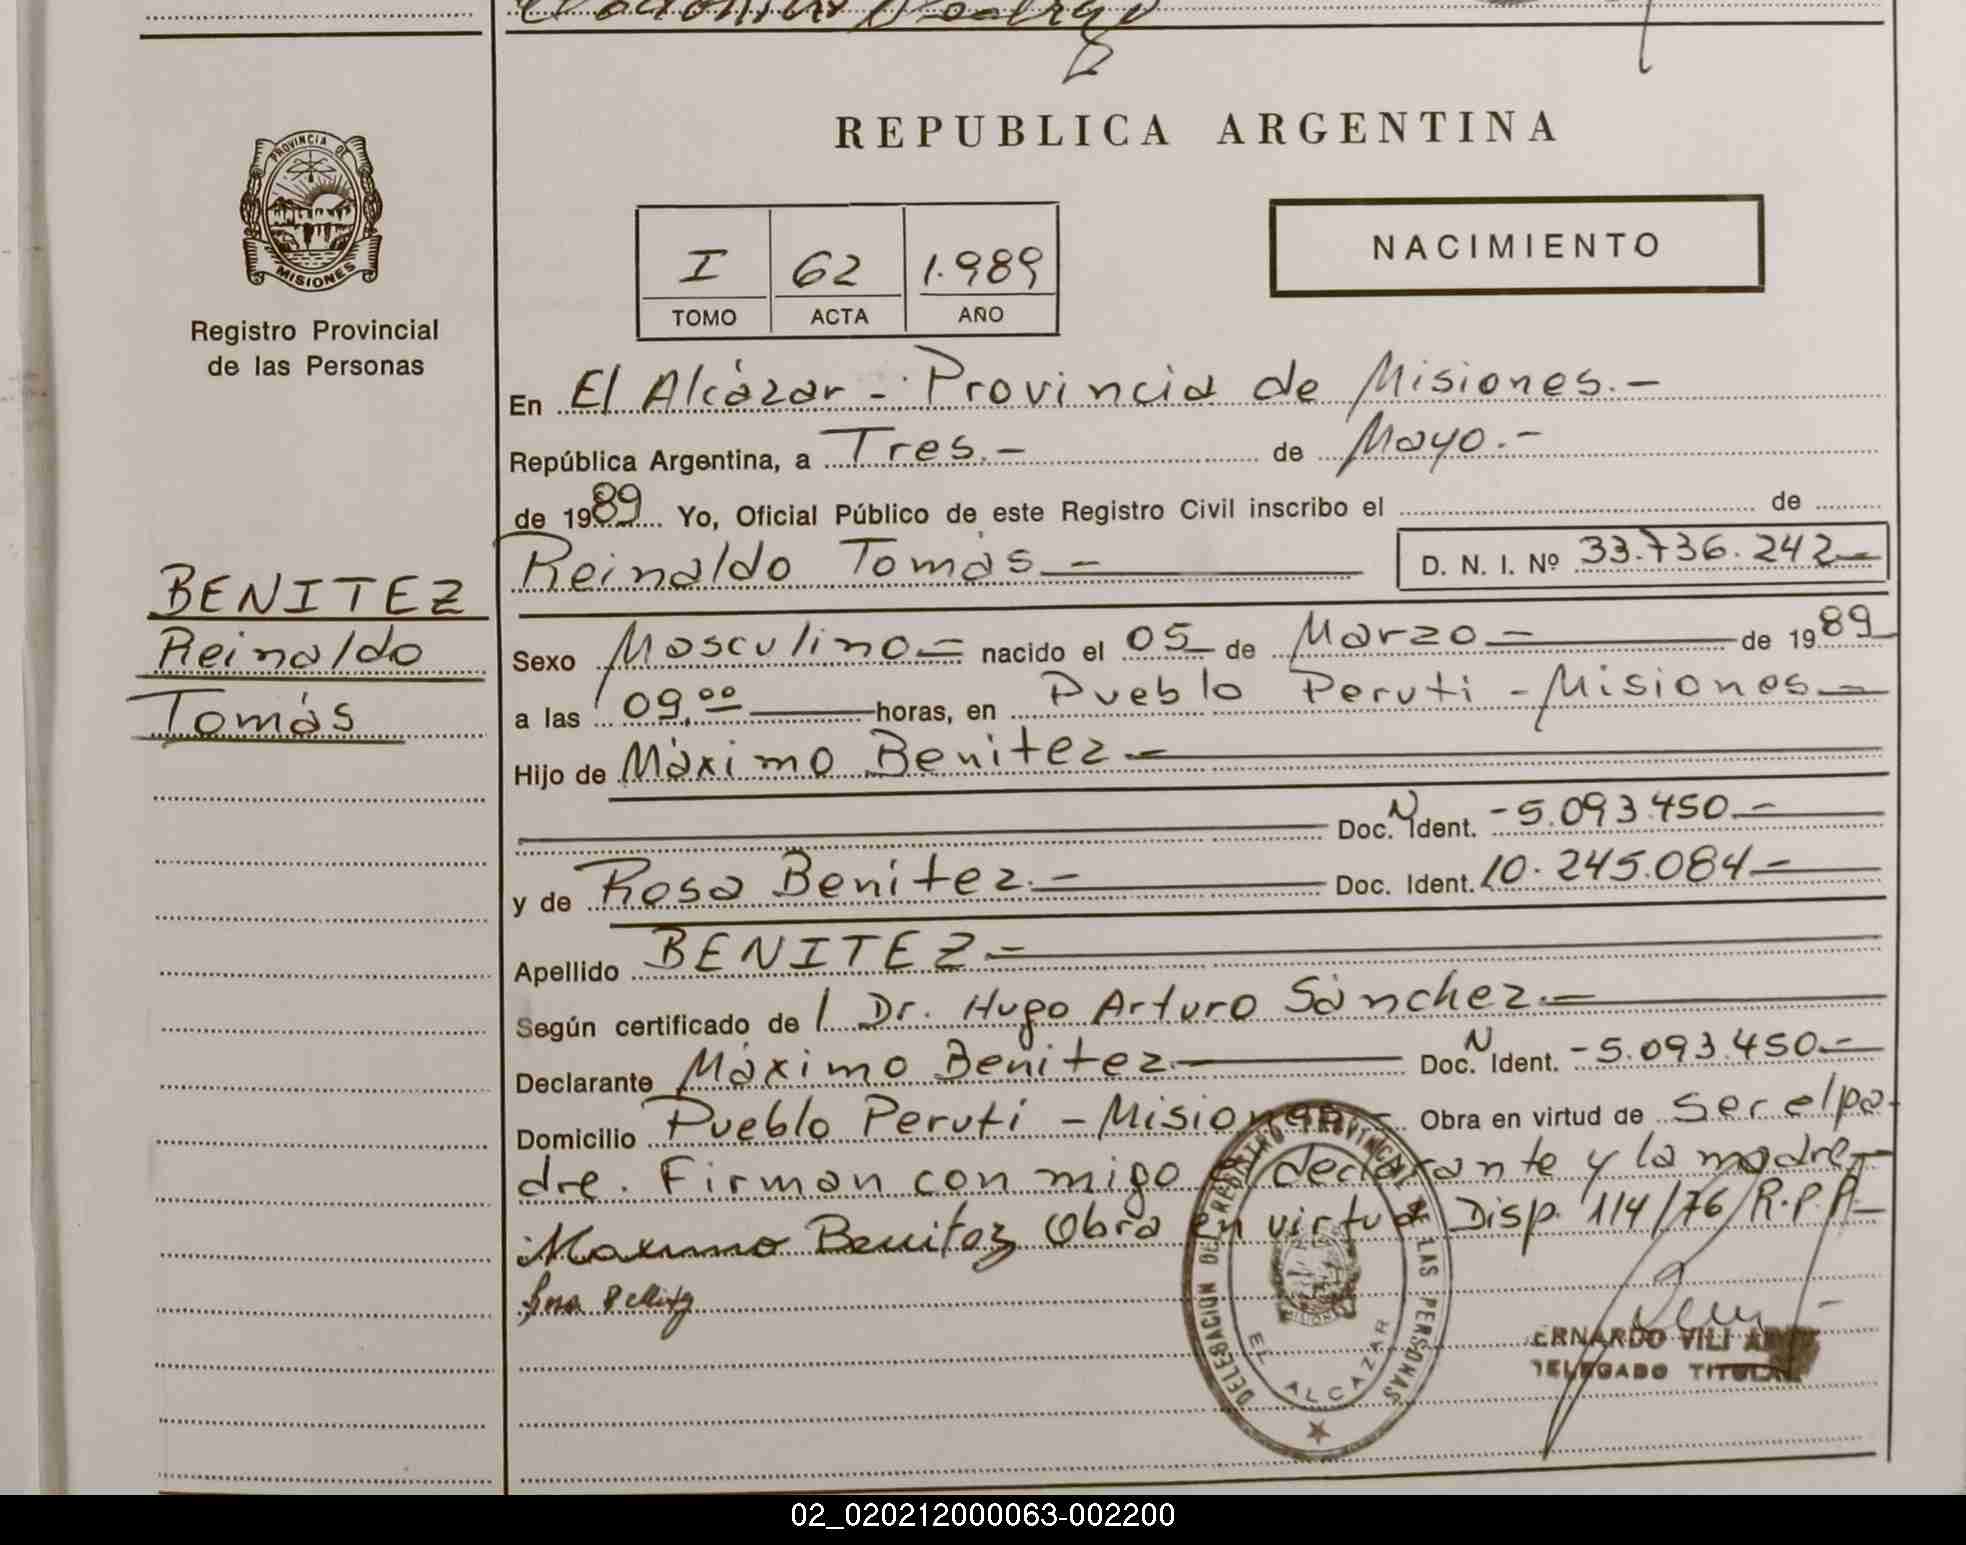 PROVINCIA DE
MISIONES
Registro Provincial
de las Personas
BENITEZ
Reinaldo
Tomás
REPUBLICA ARGENTINA
I 62 1.989
TOMO ACTA AÑO
NACIMIENTO
En El Alcázar - Provincia de Misiones.-
República Argentina, a Tres.- de Mayo.-
de 1989 Yo, Oficial Público de este Registro Civil inscribo el de
Reinaldo Tomás - D. N. I. Nº 33.736.242-
Sexo Masculino - nacido el 05 de Marzo - de 1989
a las 09,00 horas, en Pueblo Peruti - Misiones -
Hijo de Máximo Benitez -
Doc. N Ident. - 5.093.450 -
y de Rosa Benitez.- Doc. Ident. 10.245.084 -
Apellido BENITEZ -
Según certificado de / Dr. Hugo Arturo Sánchez.-
Declarante Máximo Benitez.- Doc. N Ident. - 5.093.450.-
Domicilio Pueblo Peruti - Misiones - Obra en virtud de ser el pa-
dre. Firman con migo el declarante y la madre.-
Maximo Benitez Obra en virtud Disp. 114/76 R.P.P.-
DELEGACION DEL REGISTRO PROVINCIAL DE LAS PERSONAS
EL ALCAZAR
DELEGADO TITULAR
02_020212000063-002200